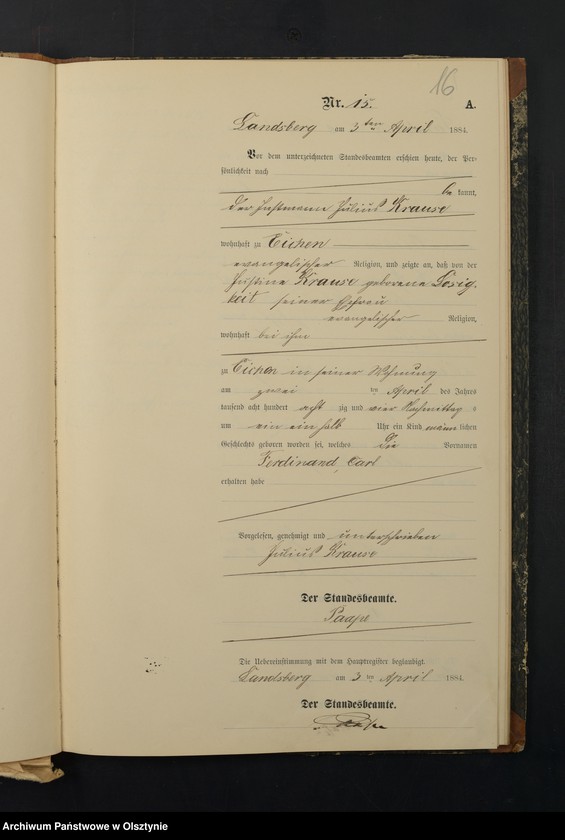 16
Nr. 15. A.
Landsberg am 3ten April 1884.
Vor dem unterzeichneten Standesbeamten erschien heute, der Per-
sönlichkeit nach
be kannt,
der Instmann Julius Krause
wohnhaft zu Eichen
evangelischer Religion, und zeigte an, daß von der
Justine Krause geborene Losig-
keit seiner Ehefrau
evangelischer Religion,
wohnhaft bei ihm
zu Eichen in seiner Wohnung
am zwei ten April des Jahres
tausend acht hundert acht zig und vier Nachmittag s
um ein ein halb Uhr ein Kind männ lichen
Geschlechts geboren worden sei, welches Die Vornamen
Ferdinand, Carl
erhalten habe
Vorgelesen, genehmigt und unterschrieben
Julius Krause
Der Standesbeamte.
Paape
Die Uebereinstimmung mit dem Hauptregister beglaubigt.
Landsberg am 3 ten April 1884.
Der Standesbeamte.
Paape
Archiwum Państwowe w Olsztynie